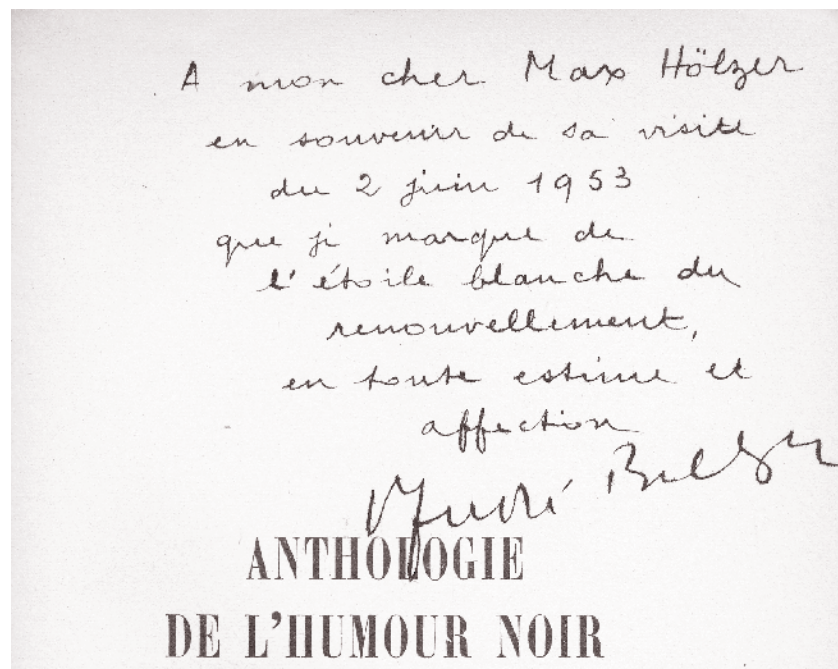 A mon cher Max Hölzer
en souvenir de sa visite
du 2 juin 1953
que je marque de
l'étoile blanche du
renouvellement,
en toute estime et
affection
André Breton
ANTHOLOGIE
DE L'HUMOUR NOIR